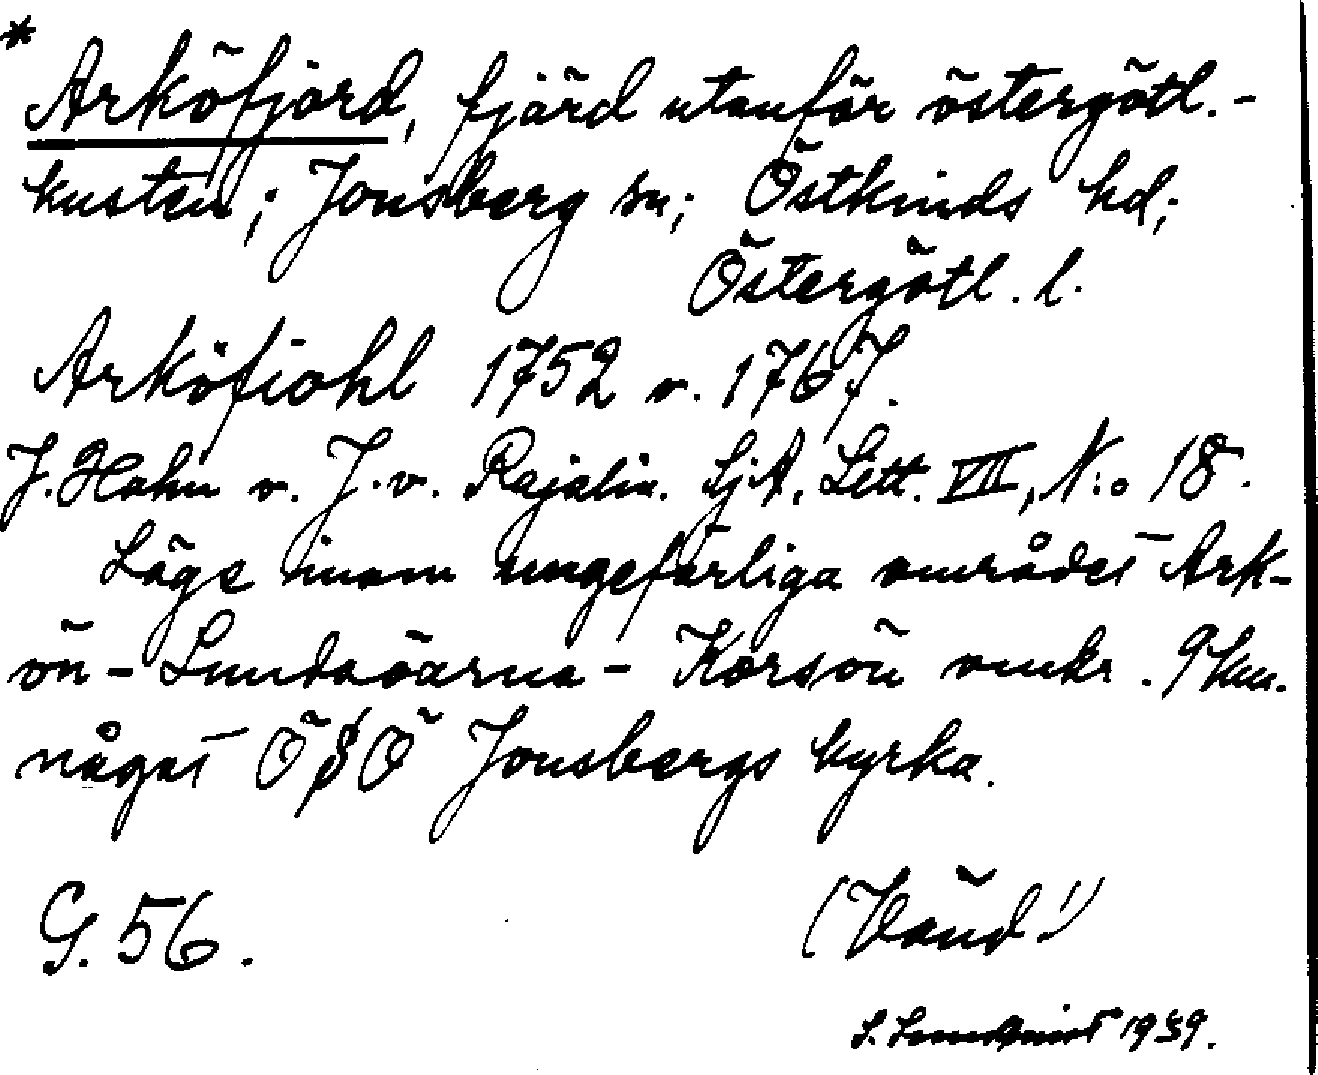 * Arköfjärd, fjärd utanför östergötl.-
kusten; Jonsberg sn; Östkinds hd;
Östergötl. l.
Arköfiohl 1752 o. 1767.
J. Hahn o. J. v. Rajalin. SjA, Litt. VII, N:o 18.
Läge inom ungefärliga området Ark-
ön - Lundaöarna - Korsön omkr. 9 km.
något ÖSÖ Jonsbergs kyrka.
G. 56.
(Vänd!)
S. 1939.